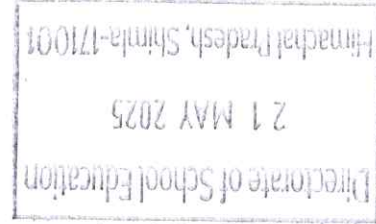 Directorate of School Education
21 MAY 2025
Himachal Pradesh, Shimla-171001